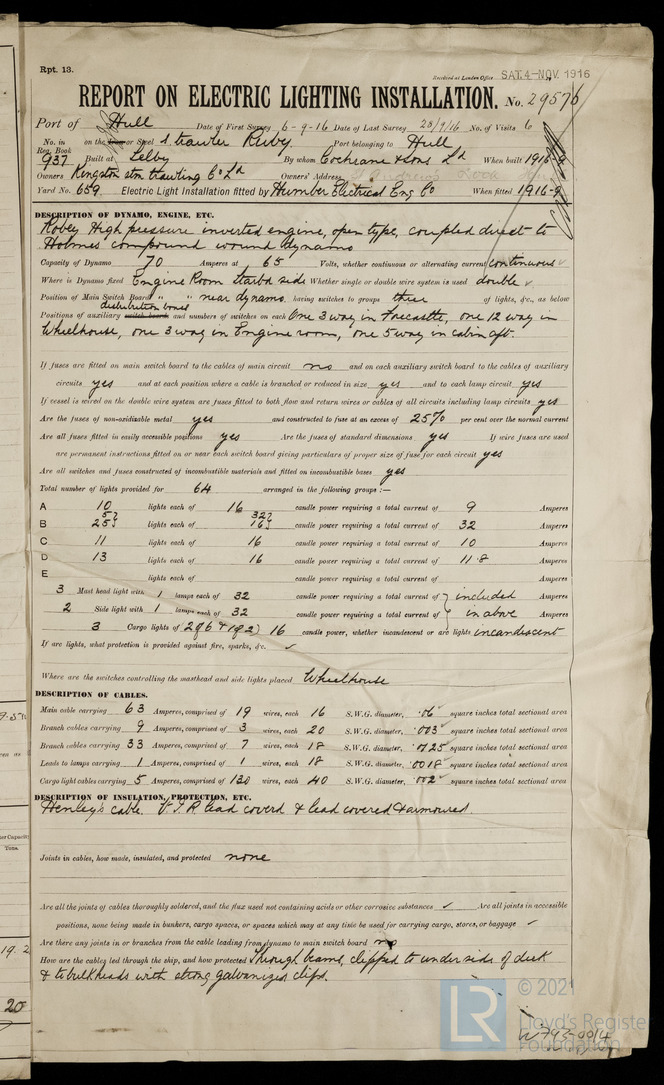 Rpt. 13.
Received at London Office SAT. 4-NOV. 1916
REPORT ON ELECTRIC LIGHTING INSTALLATION. No. 29576
Port of Hull Date of First Survey 6-9-16 Date of Last Survey 28/9/16 No. of Visits 6
No. in Reg. Book on the Iron or Steel S. trawler Ruby Port belonging to Hull
937 Built at Selby By whom Cochrane & Sons Ld When built 1916-9
Owners Kingston Stm Trawling Co Ld Owners' Address St Andrew's Dock
Yard No. 659 Electric Light Installation fitted by Humber Electrical Eng Co When fitted 1916-9
DESCRIPTION OF DYNAMO, ENGINE, ETC.
Robey High pressure inverted engine, open type, coupled direct to
Holmes compound wound dynamo
Capacity of Dynamo 70 Amperes at 65 Volts, whether continuous or alternating current continuous ✓
Where is Dynamo fixed Engine Room starbd side Whether single or double wire system is used double ✓
Position of Main Switch Board " " near dynamo. having switches to groups three of lights, &c., as below
distribution boxes
Positions of auxiliary switch boards and numbers of switches on each One 3 way in Forecastle, one 12 way in
Wheelhouse, one 3 way in Engine room, one 5 way in cabin aft.
If fuses are fitted on main switch board to the cables of main circuit no and on each auxiliary switch board to the cables of auxiliary
circuits yes and at each position where a cable is branched or reduced in size yes and to each lamp circuit yes
If vessel is wired on the double wire system are fuses fitted to both flow and return wires or cables of all circuits including lamp circuits yes
Are the fuses of non-oxidizable metal yes and constructed to fuse at an excess of 25% per cent over the normal current
Are all fuses fitted in easily accessible positions yes Are the fuses of standard dimensions yes If wire fuses are used
are permanent instructions fitted on or near each switch board giving particulars of proper size of fuse for each circuit yes
Are all switches and fuses constructed of incombustible materials and fitted on incombustible bases yes
Total number of lights provided for 64 arranged in the following groups :—
A 10 lights each of 16 candle power requiring a total current of 9 Amperes
5} 32}
B 25} lights each of 16} candle power requiring a total current of 32 Amperes
C 11 lights each of 16 candle power requiring a total current of 10 Amperes
D 13 lights each of 16 candle power requiring a total current of 11.8 Amperes
E lights each of candle power requiring a total current of Amperes
3 Mast head light with 1 lamps each of 32 candle power requiring a total current of } included Amperes
2 Side light with 1 lamps each of 32 candle power requiring a total current of } in above Amperes
3 Cargo lights of 2 of 6 & 1 of 2) 16 candle power, whether incandescent or arc lights incandescent
If arc lights, what protection is provided against fire, sparks, &c. ✓
Where are the switches controlling the masthead and side lights placed Wheelhouse
DESCRIPTION OF CABLES.
Main cable carrying 63 Amperes, comprised of 19 wires, each 16 S.W.G. diameter, .06 square inches total sectional area
Branch cables carrying 9 Amperes, comprised of 3 wires, each 20 S.W.G. diameter, .003 square inches total sectional area
Branch cables carrying 33 Amperes, comprised of 7 wires, each 18 S.W.G. diameter, .0125 square inches total sectional area
Leads to lamps carrying 1 Amperes, comprised of 1 wires, each 18 S.W.G. diameter, .0018 square inches total sectional area
Cargo light cables carrying 5 Amperes, comprised of 130 wires, each 40 S.W.G. diameter, .002 square inches total sectional area
DESCRIPTION OF INSULATION, PROTECTION, ETC.
Henley's cable. V.I.R. lead coverd & lead covered & armoured.
Joints in cables, how made, insulated, and protected none
Are all the joints of cables thoroughly soldered, and the flux used not containing acids or other corrosive substances ✓ Are all joints in accessible
positions, none being made in bunkers, cargo spaces, or spaces which may at any time be used for carrying cargo, stores, or baggage ✓
Are there any joints in or branches from the cable leading from dynamo to main switch board no
How are the cables led through the ship, and how protected Through beams, clipped to under side of deck
& to bulkheads with strong galvanized clips.
© 2021
LR Lloyd's Register
Foundation
W793-0014